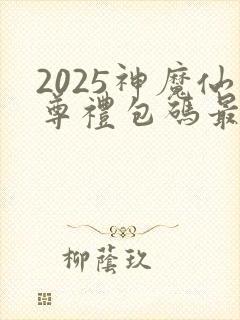 2025神魔仙
尊禮包碼最
柳蔭玖